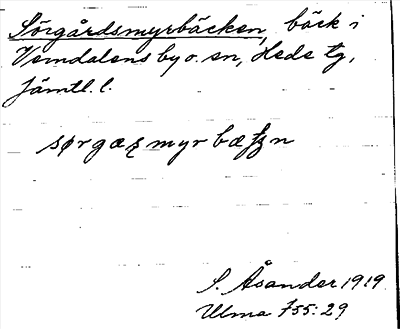 Sörgårdsmyrbäcken, bäck i
Vemdalens by o. sn, Hede tg,
Jämtl. l.
S. Åsander 1919.
Ulma 755:29